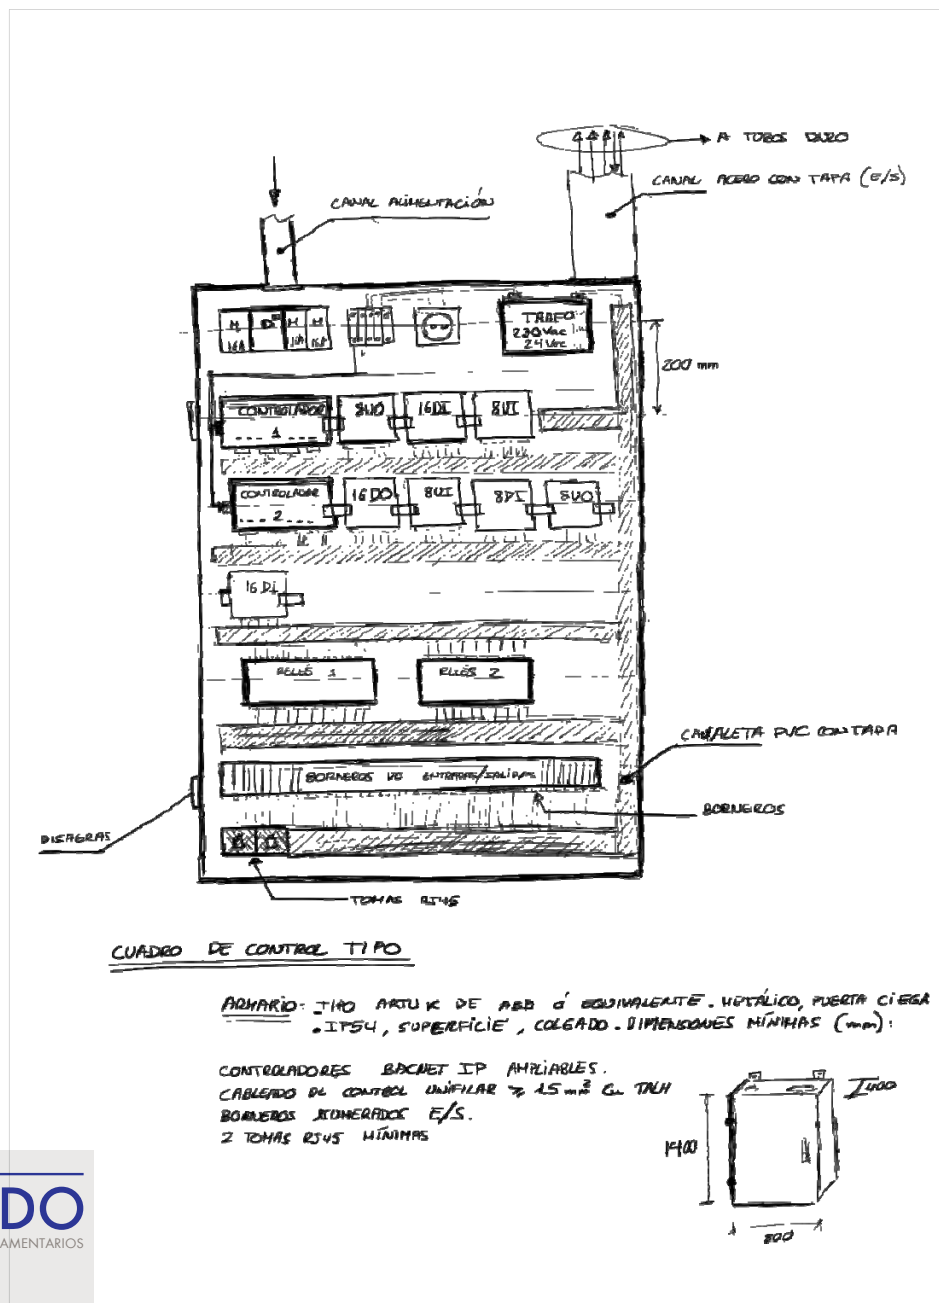 A TUBOS DURO
CANAL ACERO CON TAPA (E/S)
CANAL ALIMENTACIÓN
M
16A
D
M
16A
M
16A
TRAFO
230Vac
24Vac
200 mm
CONTROLADOR
1
8UO
16DI
8UI
CONTROLADOR
2
16DO
8UI
8DI
8UO
16DI
RELÉS 1
RELÉS 2
CANALETA PVC CON TAPA
BORNEROS ENTRADAS/SALIDAS
BORNEROS
BISAGRAS
TOMAS RJ45
CUADRO DE CONTROL TIPO
ARMARIO: TIPO ARTU K DE ABB Ó EQUIVALENTE. METÁLICO, PUERTA CIEGA
. IP54, SUPERFICIE, COLGADO. DIMENSIONES MÍNIMAS (mm):
CONTROLADORES BACNET IP AMPLIABLES.
CABLEADO DE CONTROL UNIFILAR ≥ 1.5 mm² Cu
BORNEROS NUMERADOS E/S.
2 TOMAS RJ45 MÍNIMAS
400
1400
800
DO
AMENTARIOS